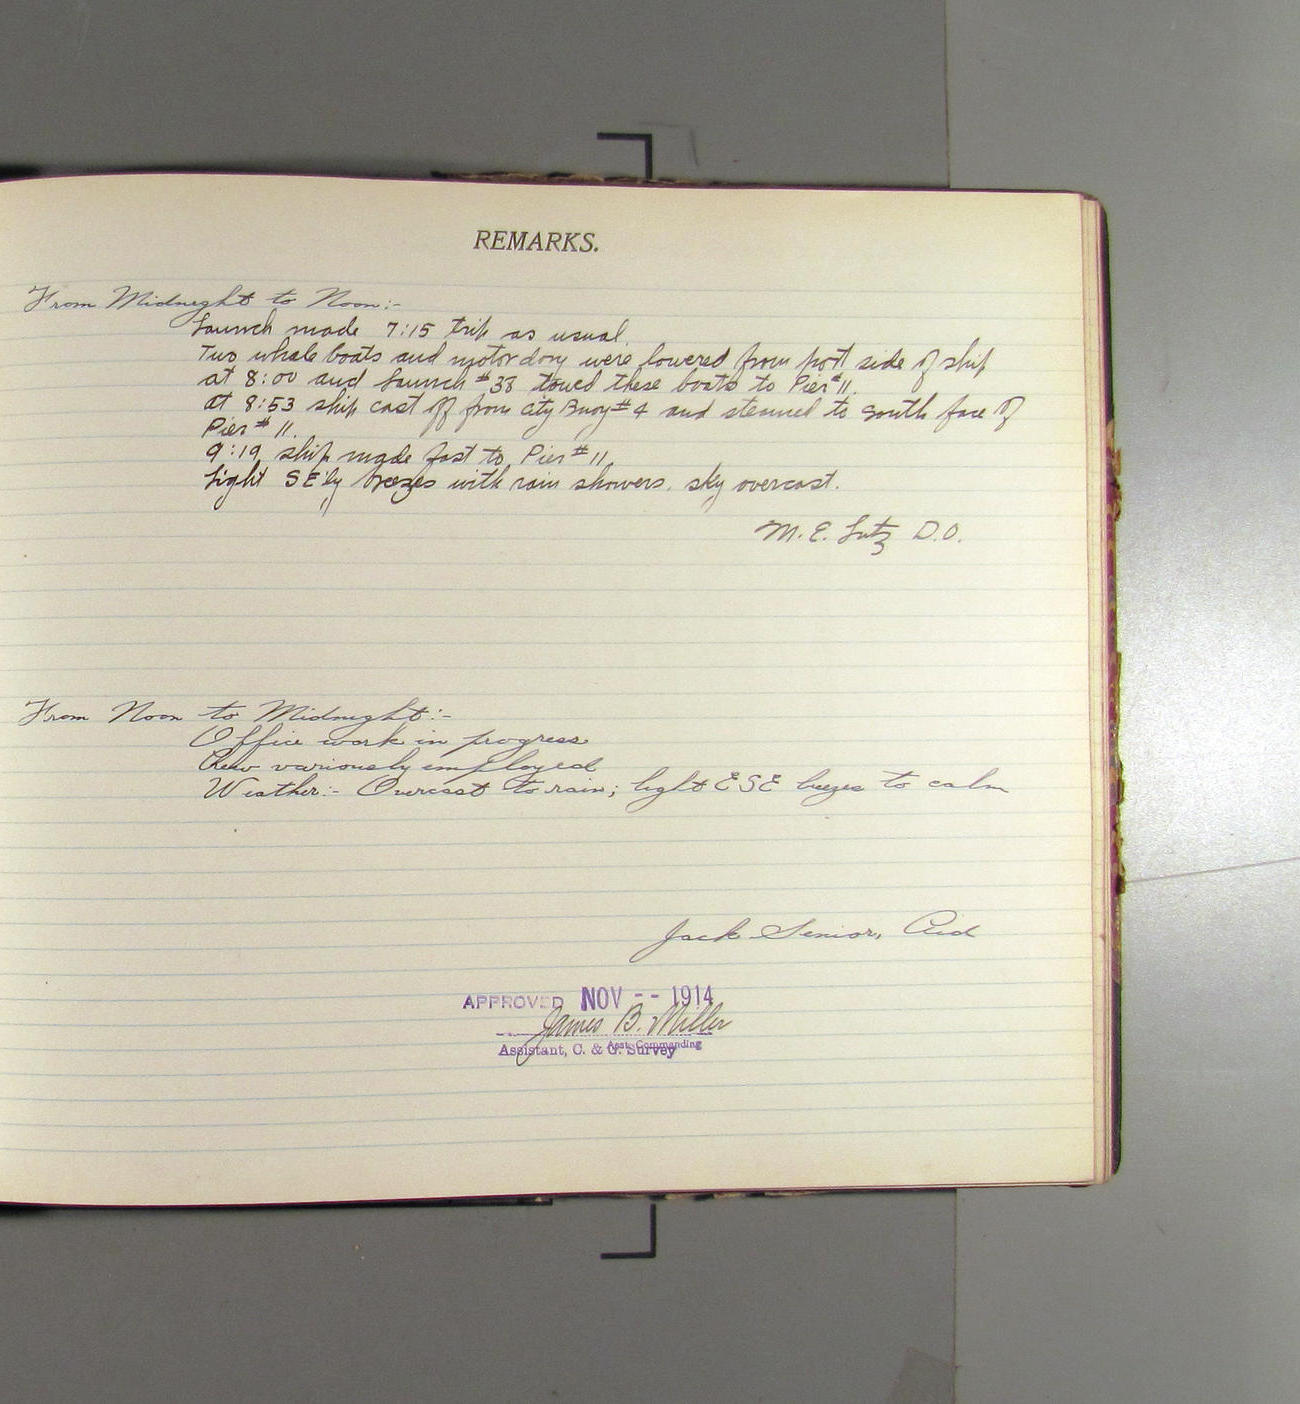 REMARKS.
From Midnight to Noon:-
Launch made 7:15 trip as usual.
Two whale boats and motor dory were lowered from port side of ship
at 8:00 and Launch #38 towed these boats to Pier #11.
at 8:53 ship cast off from city Buoy #4 and steamed to South face of
Pier #11.
9:19 ship made fast to Pier #11.
Light SE'ly breezes with rain showers, sky overcast.
M. E. Lutz D.O.
From Noon to Midnight:-
Office work in progress
Crew variously employed
Weather:- Overcast to rain; light ESE breezes to calm
Jack Senior, Aid
APPROVED NOV -- 1914
James B. Miller
Asst. Commanding
Assistant, C. & G. Survey